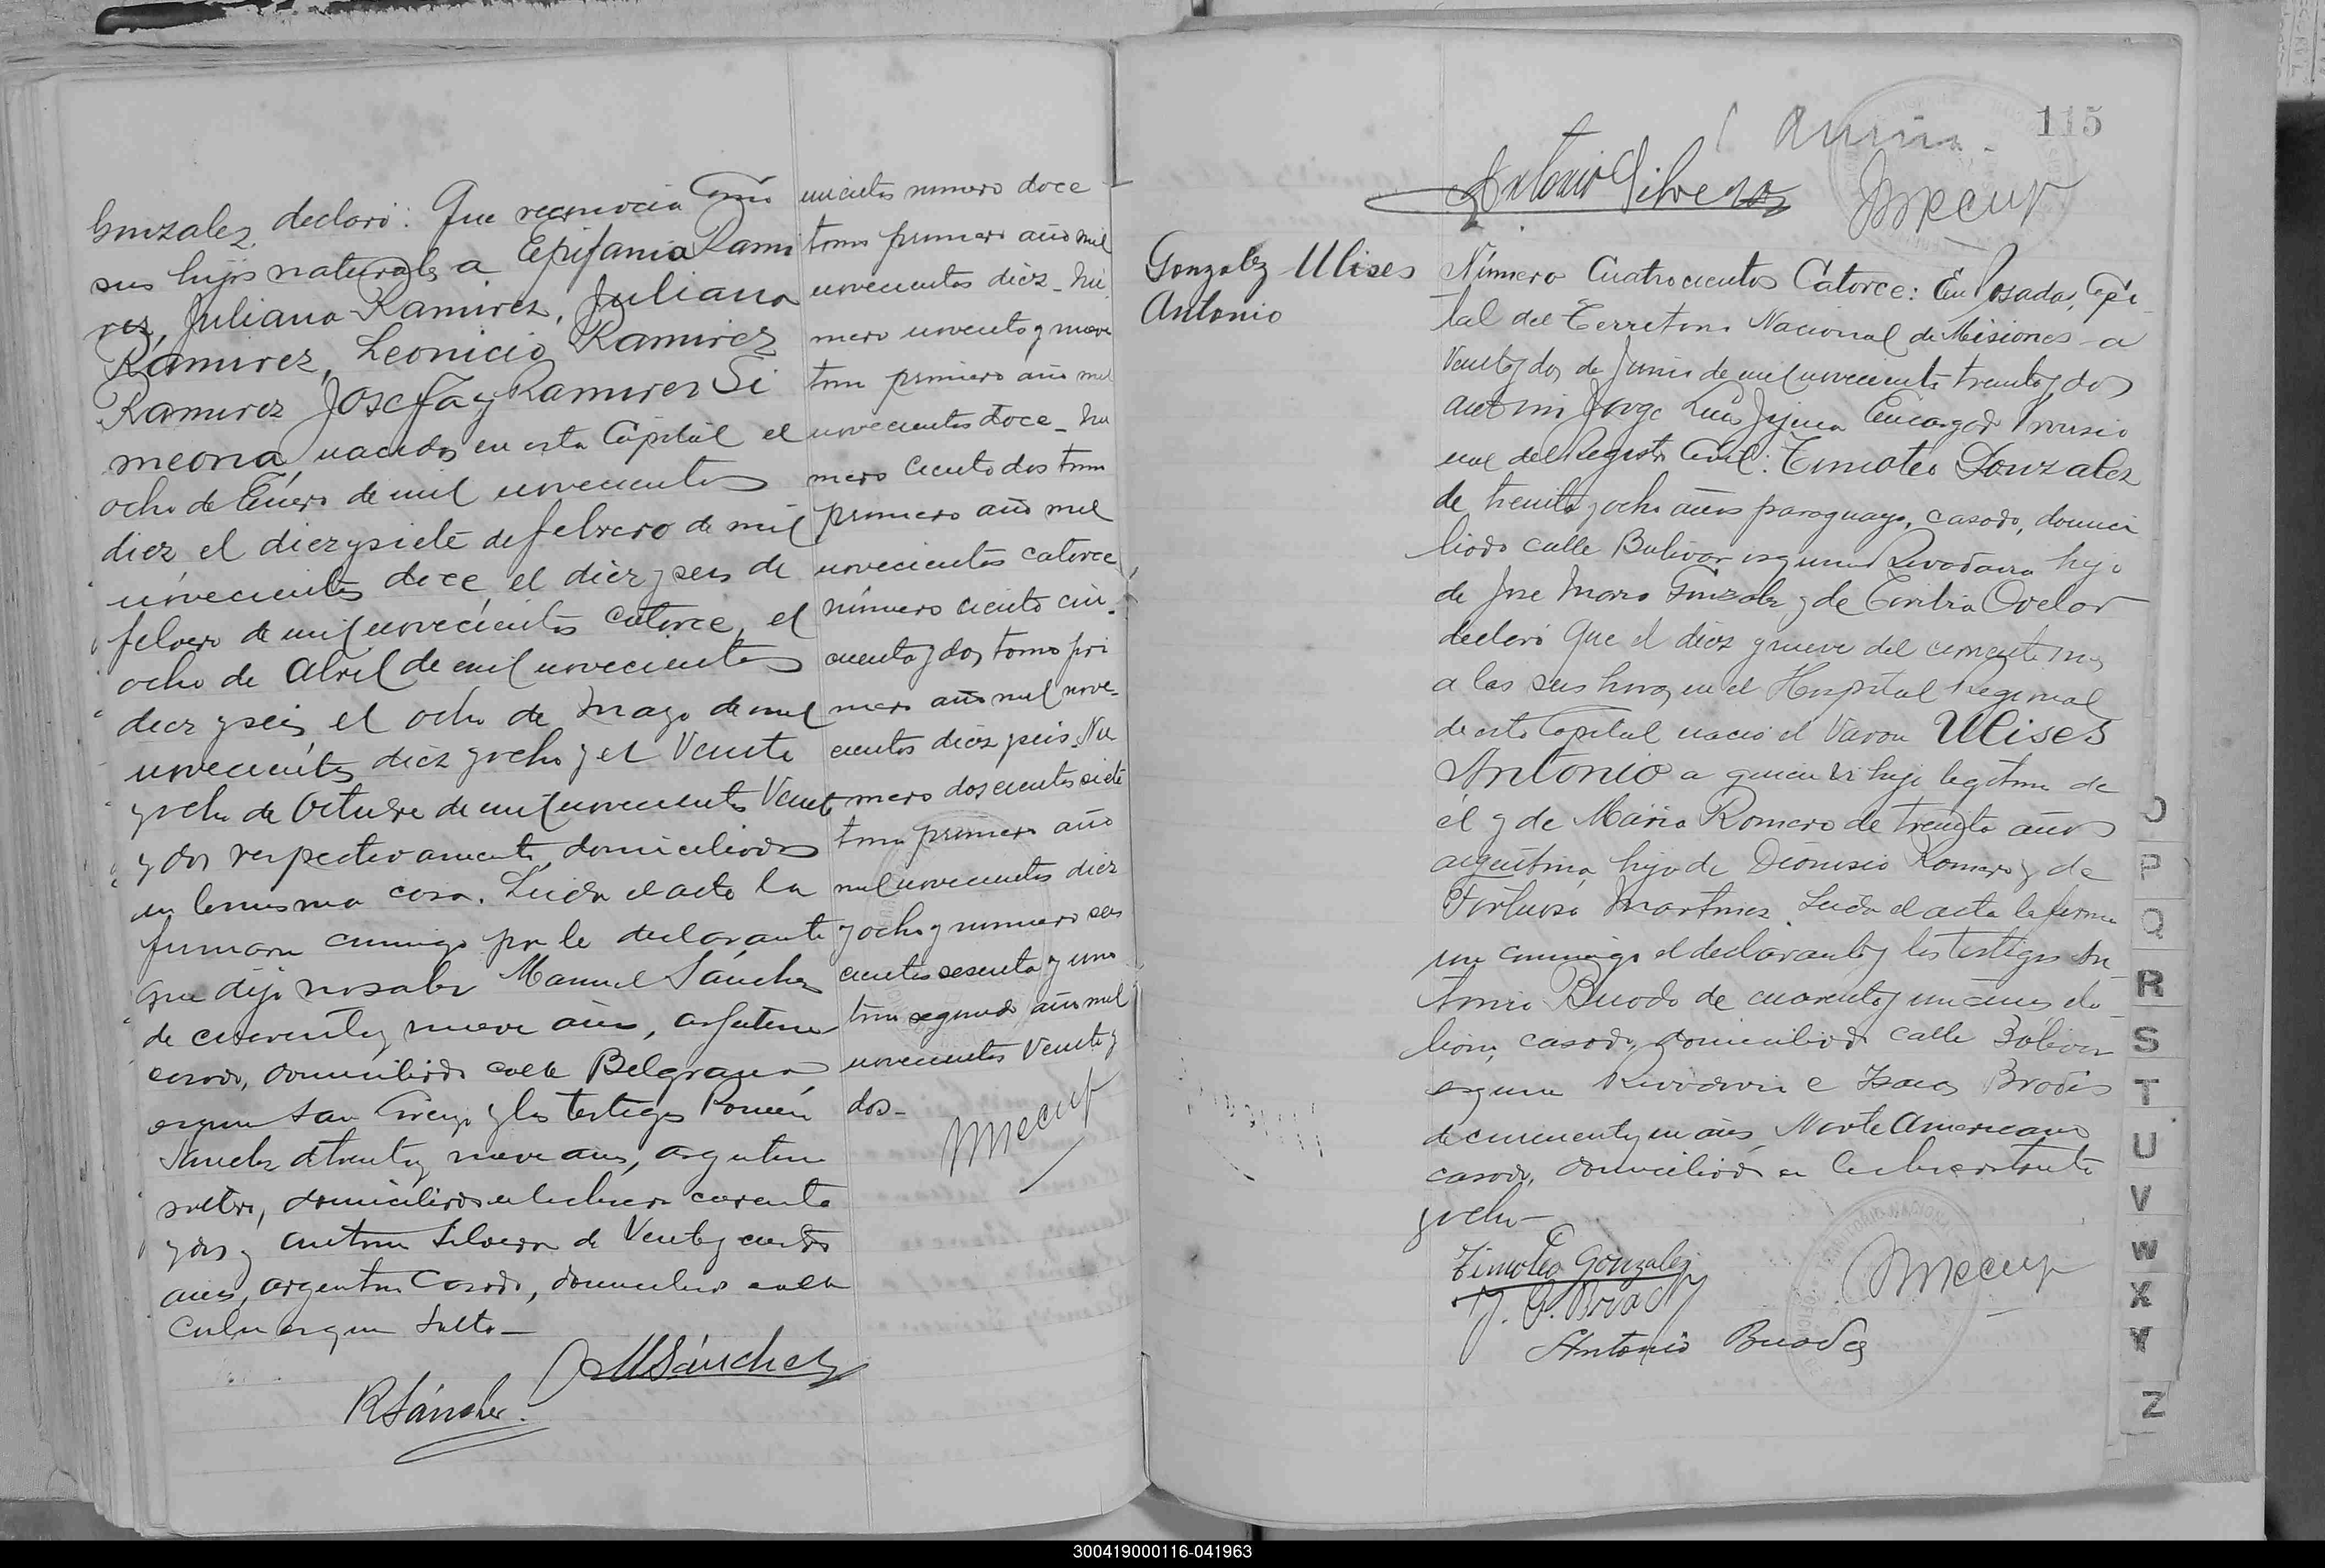 Gonzalez, declaró: Que reconocia como
sus hijos naturales a Epifania Rami
rez, Juliana Ramirez, Juliana
Ramirez, Leonicio Ramirez
Ramirez Josefa y Ramirez Si
meona, nacidos en esta Capital el
ocho de Enero de mil novecientos
diez el diez y siete de febrero de mil
novecientos doce, el diez y seis de
febrero de mil novecientos catorce, el
ocho de Abril de mil novecientos
diez y seis, el ocho de Mayo de mil
novecientos diez y ocho y el Veinte
y ocho de Octubre de mil novecientos Veint
y dos respectivamente, domiciliados
en la misma casa. Leida el acta la
firmaron conmigo por la declarante
que dijo no saber Manuel Sánchez
de cuarenta y nueve años, argentino
casado, domiciliado calle Belgrano
esquina San Lorenzo y los testigos Román
Sanchez de treinta y nueve años, argentino
soltero, domiciliado en la chacra cuarenta
y dos y Antonio Silvera de Veinte y cuatro
años, argentino Casado, domiciliado calle
Colon esquina Salto
MSánchez
RSánchez.
nucientos numero doce
tomo primero año mil
novecientos diez - Nú
mero noventa y nueve
tomo primero año mil
novecientos doce - Nu
mero ciento dos tomo
primero año mil
novecientos catorce
número ciento cin-
cuenta y dos tomo pri
mero año mil nove-
cientos diez y seis. Nu
mero doscientos siete
tomo primero año
mil novecientos diez
y ocho y numero seis
cientos sesenta y uno
tomo segundo año mil
novecientos Veinte y
dos-
115
Antonio Silvera
Gonzalez Ulises
Antonio
Número Cuatrocientos Catorce: En Posadas, Capi-
tal del Territorio Nacional de Misiones a
Veinte y dos de Junio de mil novecientos treinta y dos
ante mi Jorge Luis Encargado Proviso
nal del Registro Civil: Timoteo Gonzalez
de treinta y ocho años paraguayo, casado, domici
liado calle Bolivar esquina Rivadavia hijo
de Jose Maria Gonzalez y de Ovelar
declaró Que el diez y nueve del corriente mes
a las seis horas en el Hospital Regional
de esta Capital nació el Varon Ulises
Antonio a quien es hijo legitimo de
él y de Maria Romero de treinta años
argentina hija de Dionisio Romero y de
Martinez. Leida el acta la firma
ron conmigo el declarante y los testigos An
tonio Buodo de cuarenta y un años ita-
liano, casado, domiciliado calle Bolivar
esquina Rivadavia e Isaac
de cincuenta y un años Norte Americano
casado, domiciliado en la chacra treinta
y ocho-
Timoteo Gonzalez
Antonio Buodo
O
P
Q
R
S
T
U
V
W
X
Y
Z
300419000116-041963